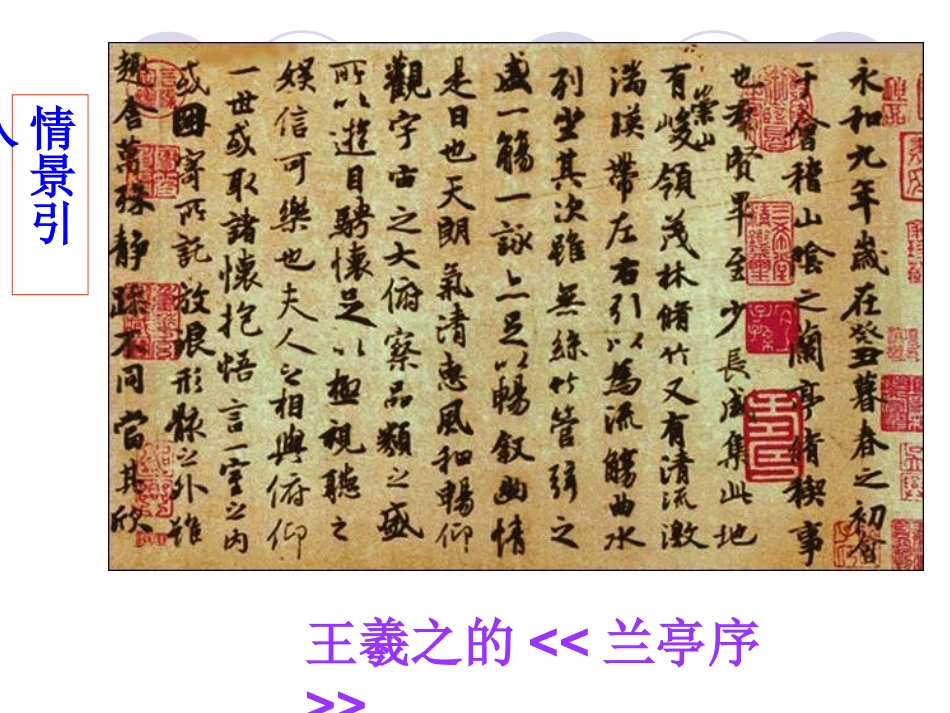 情景引
入
永和九年歲在癸丑暮春之初會
于會稽山陰之蘭亭脩稧事
也羣賢畢至少長咸集此地
有崇山峻領茂林脩竹又有清流激
湍暎帶左右引以為流觴曲水
列坐其次雖無絲竹管弦之
盛一觴一詠亦足以暢敘幽情
是日也天朗氣清惠風和暢仰
觀宇宙之大俯察品類之盛
所以遊目騁懷足以極視聽之
娛信可樂也夫人之相與俯仰
一世或取諸懷抱悟言一室之内
或因寄所託放浪形骸之外雖
趣舍萬殊靜躁不同當其欣
王羲之的 << 兰亭序
>>